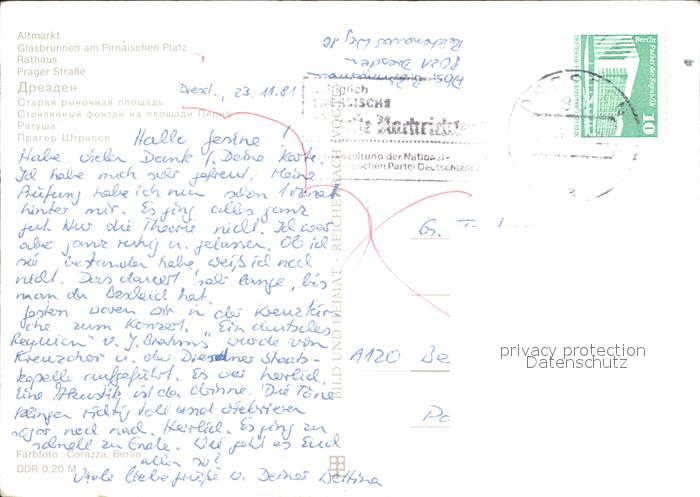 Altmarkt
Glasbrunnen am Pirnaischen Platz
Rathaus
Prager Straße
Дрезден
Старая рыночная площадь
Стеклянный фонтан на площади Пирна
Ратуша
Прагер Штрассе
Dresd., 23.11.81
Hallo Gesine!
Habe vielen Dank f. Deine Karte.
Ich habe mich sehr gefreut. Meine
Prüfung habe ich nun schon 1 Monat
hinter mir. Es ging alles ganz
gut. Nur die Theorie nicht. Ich war
aber ganz ruhig u. gelassen. Ob ich
sie bestanden habe, weiß ich noch
nicht. Das dauert sehr lange, bis
man da Bescheid hat.
Gestern waren wir in der Kreuzkir-
che zum Konzert. "Ein deutsches
Requiem" v. J. Brahms wurde vom
Kreuzchor u. der Dresdner Staats-
kapelle aufgeführt. Es war herrlich.
Eine Akustik ist da drinne. Die Töne
klingen richtig voll und vibrieren
sogar noch nach. Herrlich. Es ging zu
schnell zu Ende. Wie geht es Euch
allen so?
Viele liebe Grüße v. Deiner Bettina
Farbfoto: Corazza, Berlin
DDR 0,20 M
BILD UND HEIMAT · REICHENBACH (VOGTL)
8021 Dresden
täglich
SÄCHSISCHE
Nachrichten
zeitung der National-
Partei Deutschlands
Berlin Palast der Republik
10
G.
A120 Be
privacy protection
Datenschutz